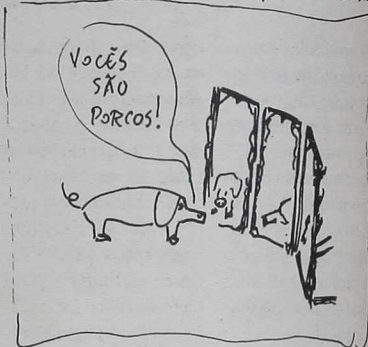 VOCÊS
SÃO
PORCOS!